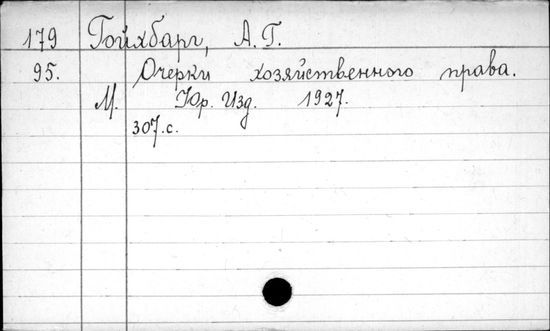 179 Гойхбарг, А. Г.
95. Очерки хозяйственного права.
М. Юр. Изд. 1927.
307.с.